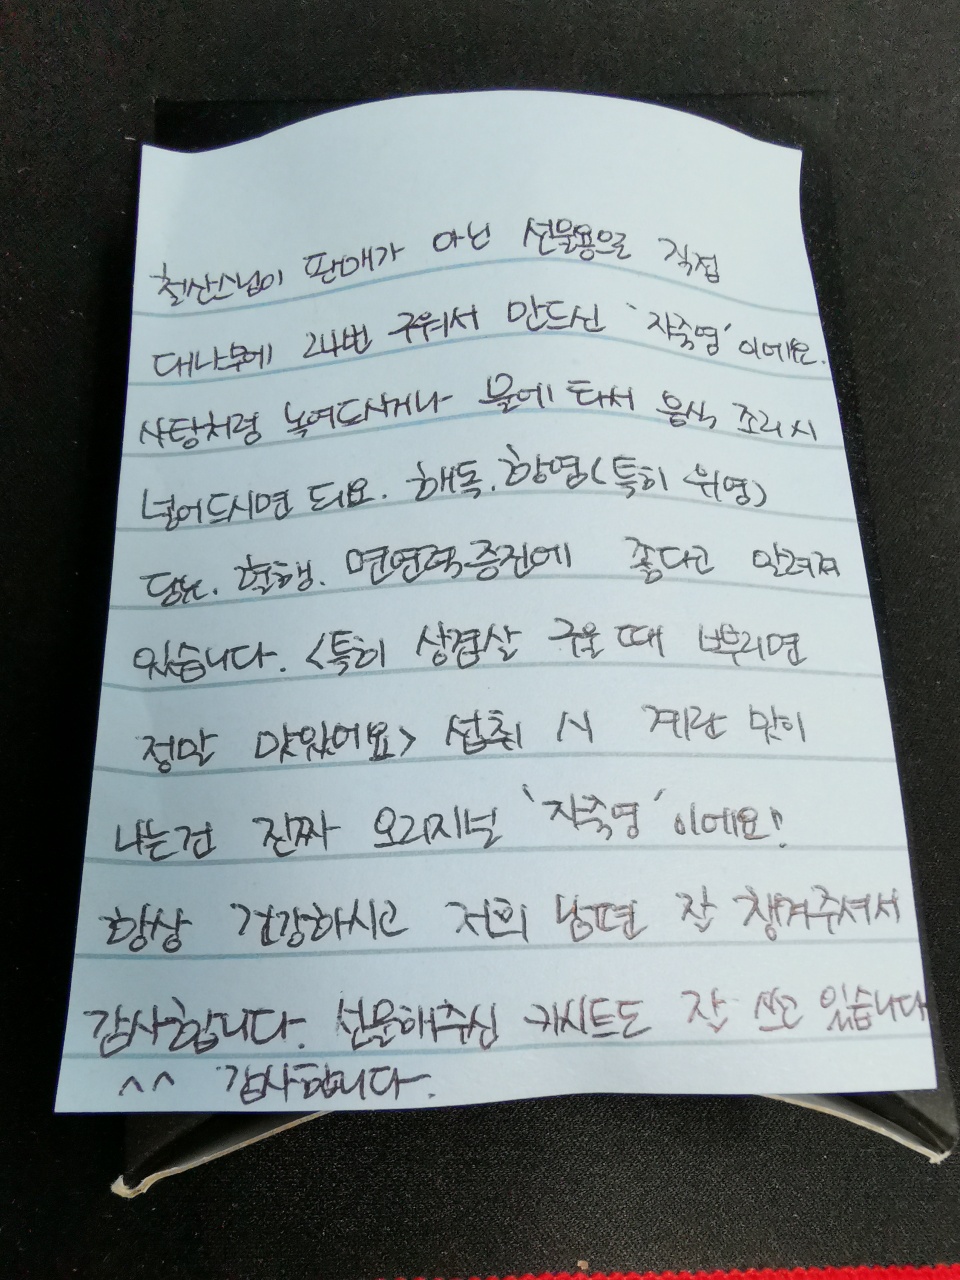 철산스님이 판매가 아닌 선물용으로 직접
대나무에 24번 구워서 만드신 '자죽염'이에요.
사탕처럼 녹여드시거나 물에 타서 음식 조리시
넣어드시면 되요. 해독. 항염(특히 위염)
당뇨. 혈행. 면연력증진에 좋다고 알려져
있습니다. <특히 삼겹살 구울 때 뿌리면
정말 맛있어요> 섭취 시 계란 맛이
나는건 진짜 오리지널 '자죽염'이에요!
항상 건강하시고 저희 남편 잘 챙겨주셔서
감사합니다. 선물해주신 카시트도 잘 쓰고 있습니다
^^ 감사합니다.